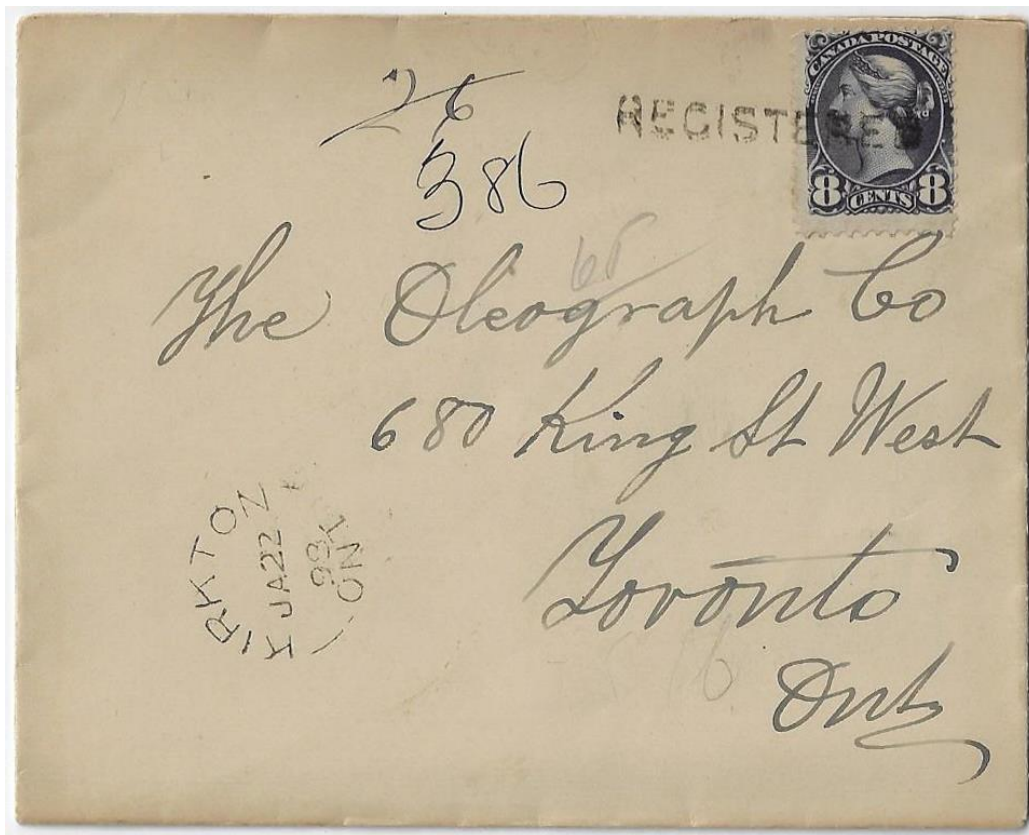 26
386
REGISTERED
CANADA POSTAGE
8 CENTS 8
65
The Oleograph Co
680 King St West
Toronto
Ont
KIRKTON
JA 22
98
ONT